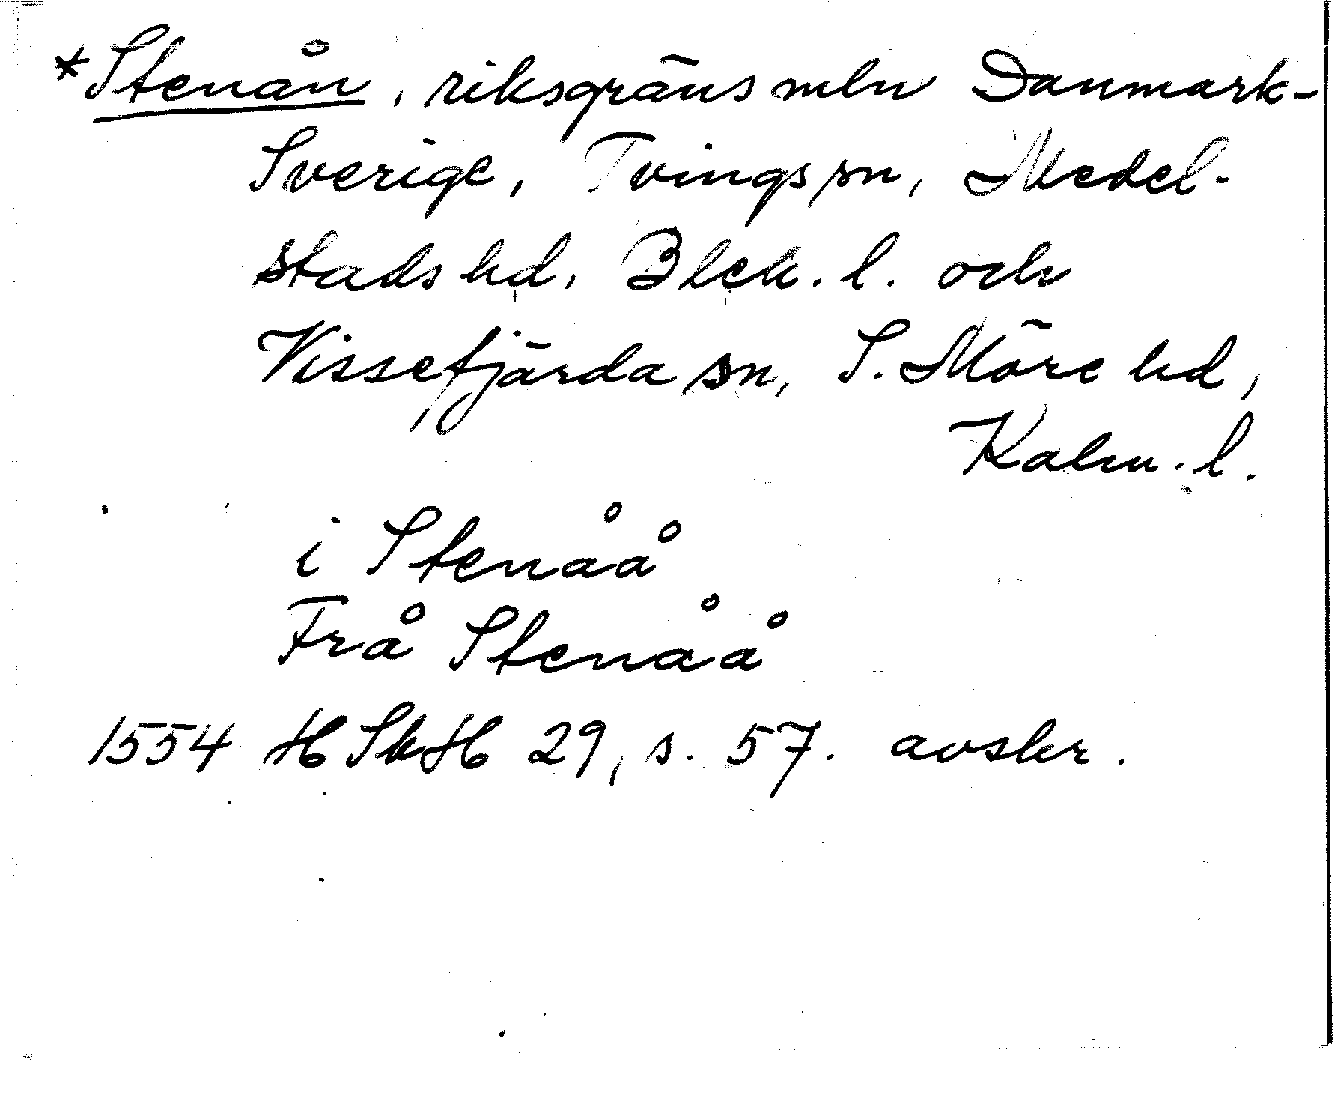 *Stenån, riksgräns mln Danmark-
Sverige, Tvings sn, Medel-
stads hd, Blek. l. och
Vissefjärda sn, S. Möre hd,
Kalm. l.
i Stenåå
Frå Stenåå
1554 HSkH 29, s. 57. avskr.